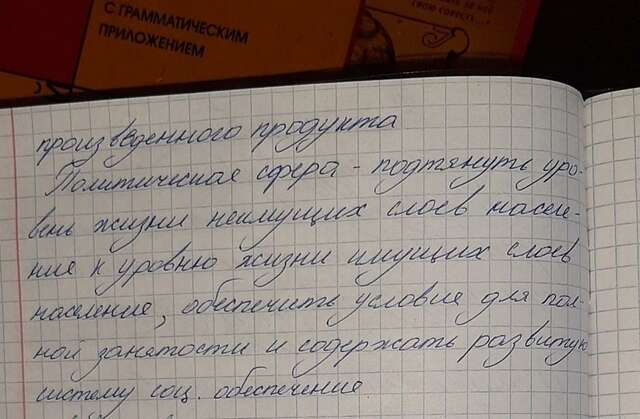 С ГРАММАТИЧЕСКИМ
ПРИЛОЖЕНИЕМ
произведенного продукта
Политическая сфера - подтянуть уро-
вень жизни неимущих слоев населе-
ние к уровню жизни имущих слоев
население, обеспечить условие для пол-
ной занятости и содержать развитую
систему соц. обеспечение